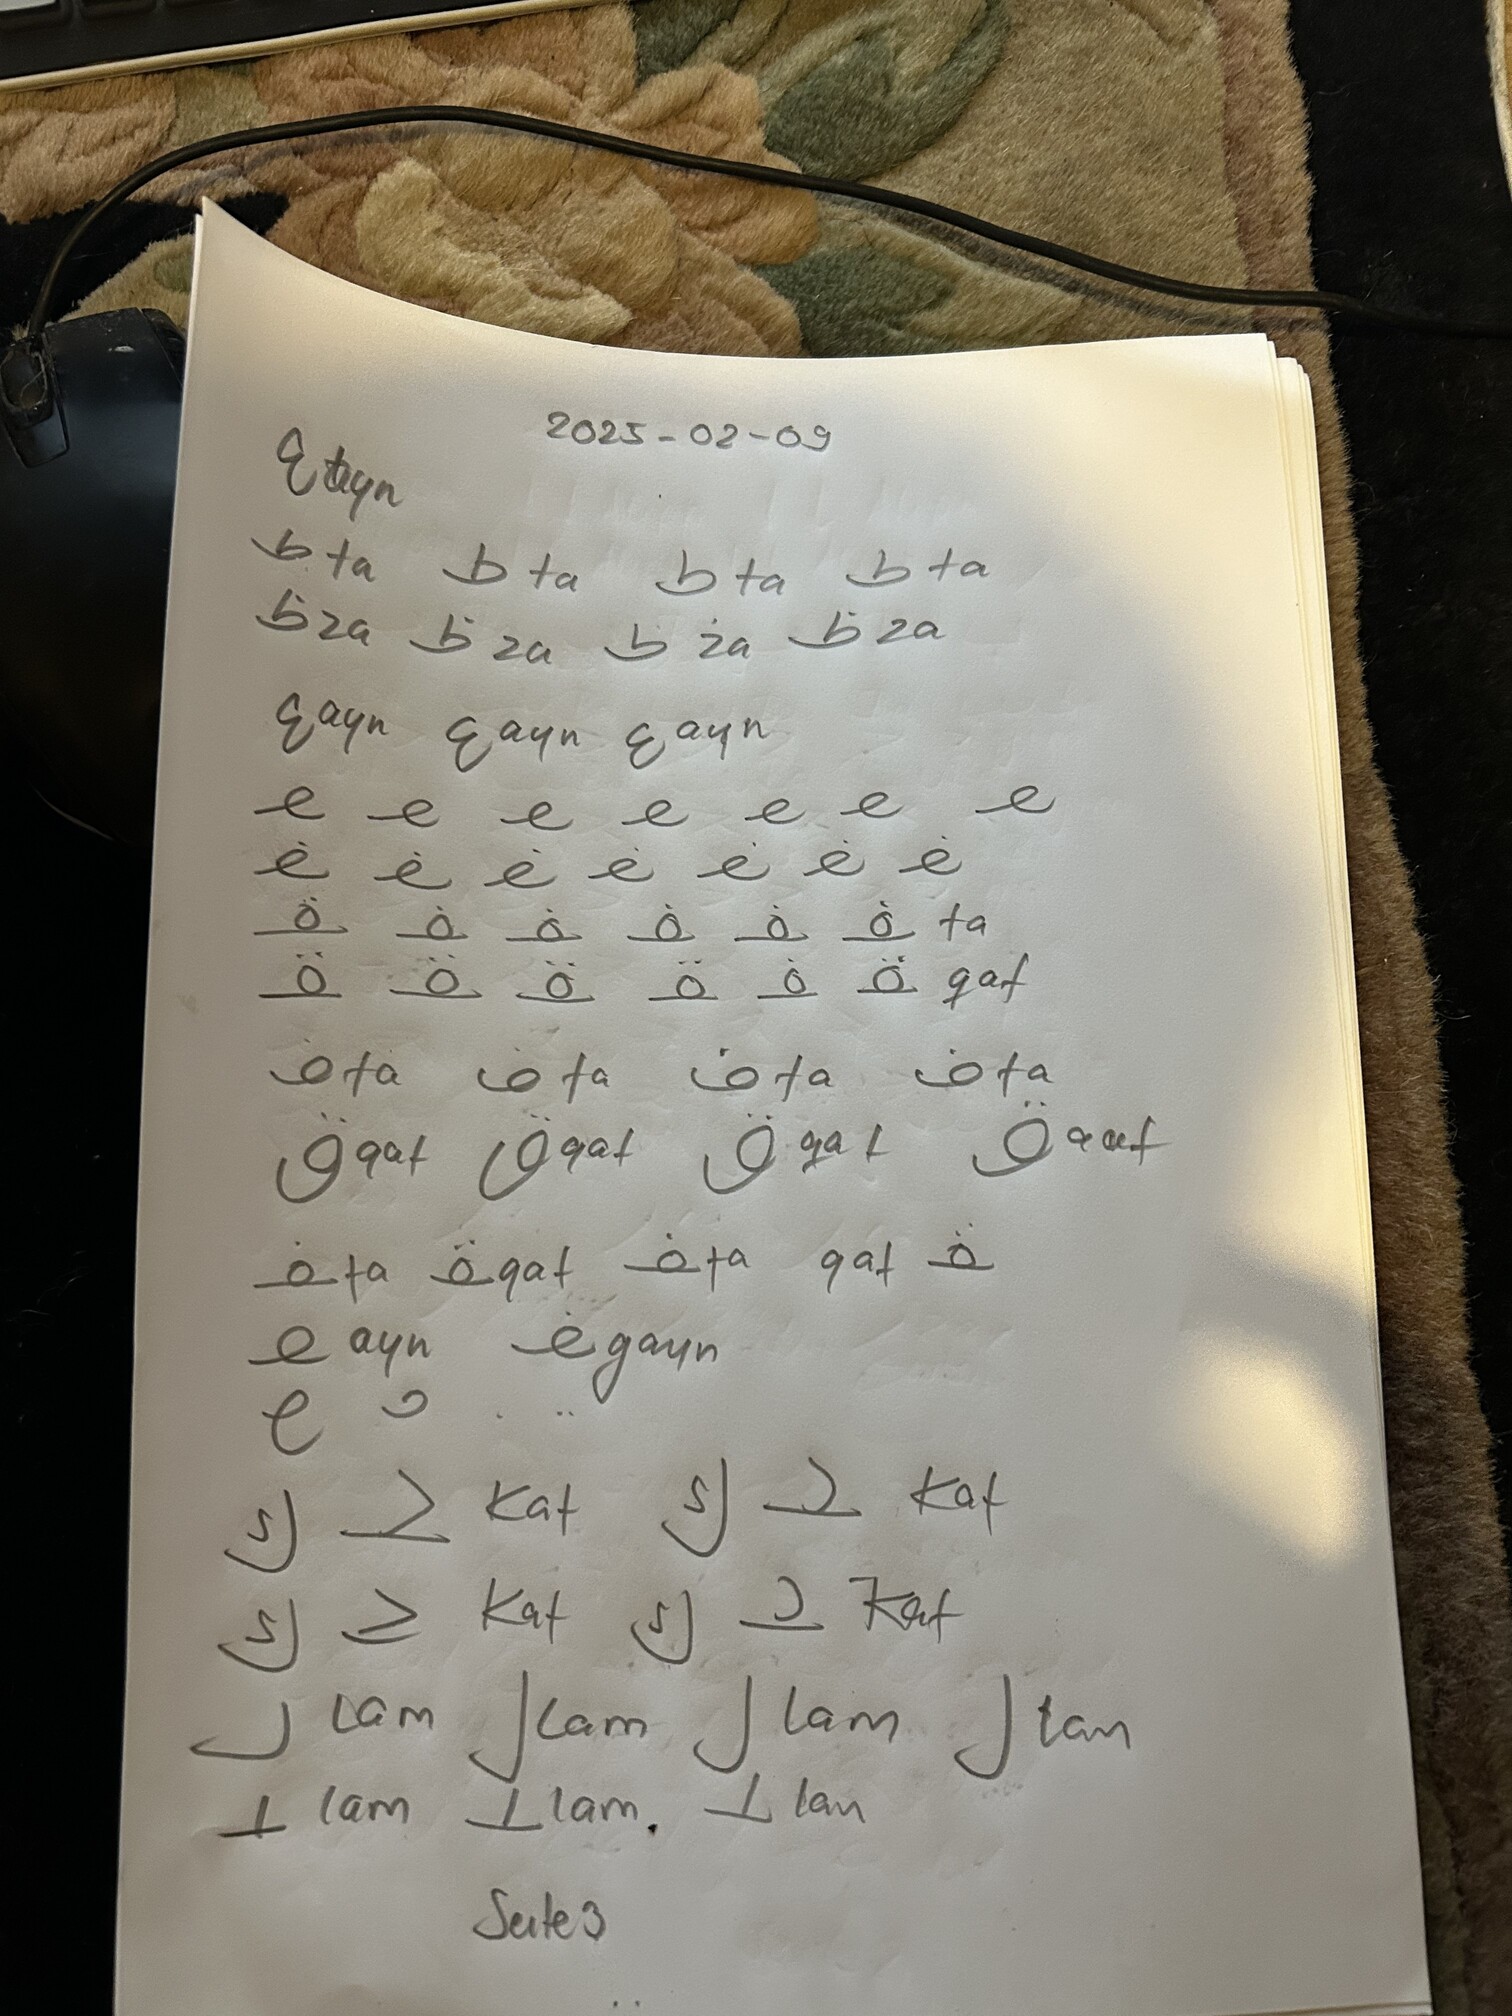 2025-02-09
ع ayn
ط ta ط ta ط ta ط ta
ظ za ظ za ظ za ظ za
ع ayn ع ayn ع ayn
ـعـ ـعـ ـعـ ـعـ ـعـ ـعـ ـعـ
ـغـ ـغـ ـغـ ـغـ ـغـ ـغـ ـغـ
ـفـ ـفـ ـفـ ـفـ ـفـ ـفـ ta
ـقـ ـقـ ـقـ ـقـ ـفـ ـقـ qaf
ف fa ف fa ف fa ف fa
ق qaf ق qaf ق qaf ق qaf
ـفـ fa ـقـ qaf ـفـ fa qaf ـقـ
ـعـ ayn ـغـ gayn
ك ـكـ Kaf ك ـكـ Kaf
ك ـكـ Kaf ك ـكـ Kaf
ل lam ل lam ل lam ل lam
ـلـ lam ـلـ lam. ـلـ lam
Seite 3